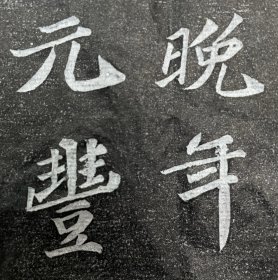 晚年
元豐